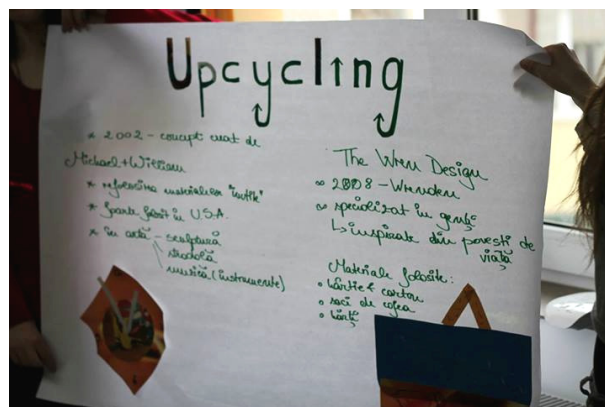 Upcycling
* 2002 - concept creat de
Michael + William
* refolosirea materialelor "inutile"
* foarte folosit în U.S.A.
* în artă - sculptură
stradală
muzică (instrumente)
The Wren Design
∞ 2008 - Wrenden
∞ specializat în genți
↳ inspirate din povești de
viață
Materiale folosite:
• hârtie + carton
• saci de cafea
• hărți